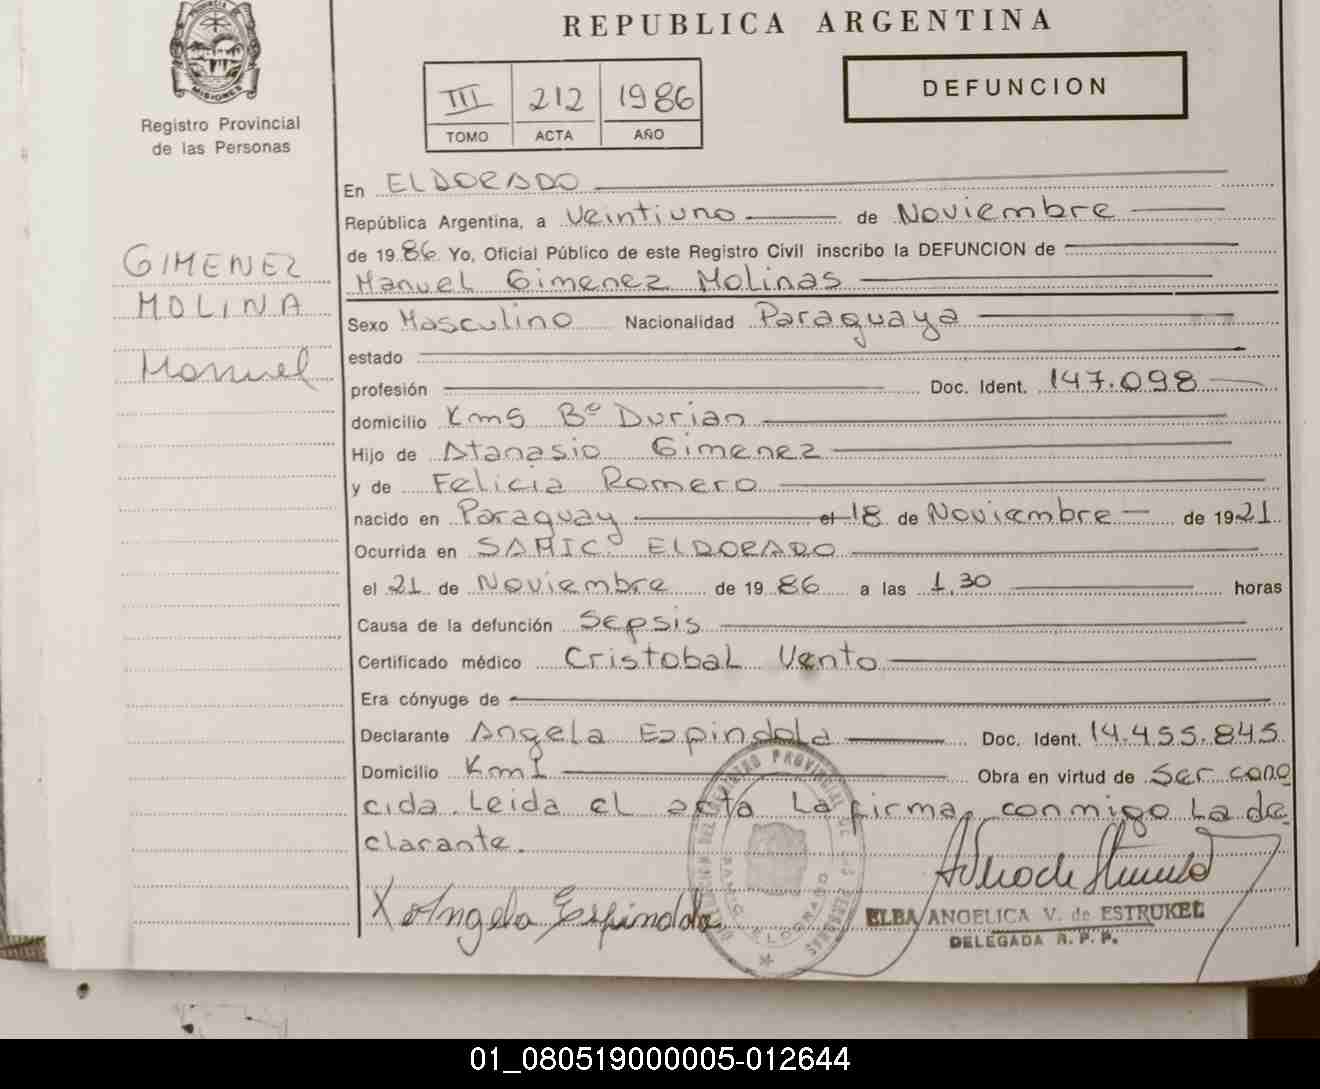 REPUBLICA ARGENTINA
PROVINCIA DE MISIONES
Registro Provincial
de las Personas
III 212 1986
TOMO ACTA AÑO
DEFUNCION
GIMENEZ
MOLINA
Manuel
En ELDORADO
República Argentina, a Veintiuno de Noviembre
de 1986 Yo, Oficial Público de este Registro Civil inscribo la DEFUNCION de
Manuel Gimenez Molinas
Sexo Masculino Nacionalidad Paraguaya
estado
profesión Doc. Ident. 147.098
domicilio Km5 Bº Durian
Hijo de Atanasio Gimenez
y de Felicia Romero
nacido en Paraguay el 18 de Noviembre de 1921
Ocurrida en SAMIC. ELDORADO
el 21 de Noviembre de 1986 a las 1.30 horas
Causa de la defunción Sepsis
Certificado médico Cristobal Vento
Era cónyuge de
Declarante Angela Espindola Doc. Ident. 14.455.845
Domicilio Km1 Obra en virtud de Ser cono
cida. Leida el acta La firma conmigo La de
clarante.
X Angela Espindola
ELBA ANGELICA V. de ESTRUKEL
DELEGADA R. P. P.
01_080519000005-012644